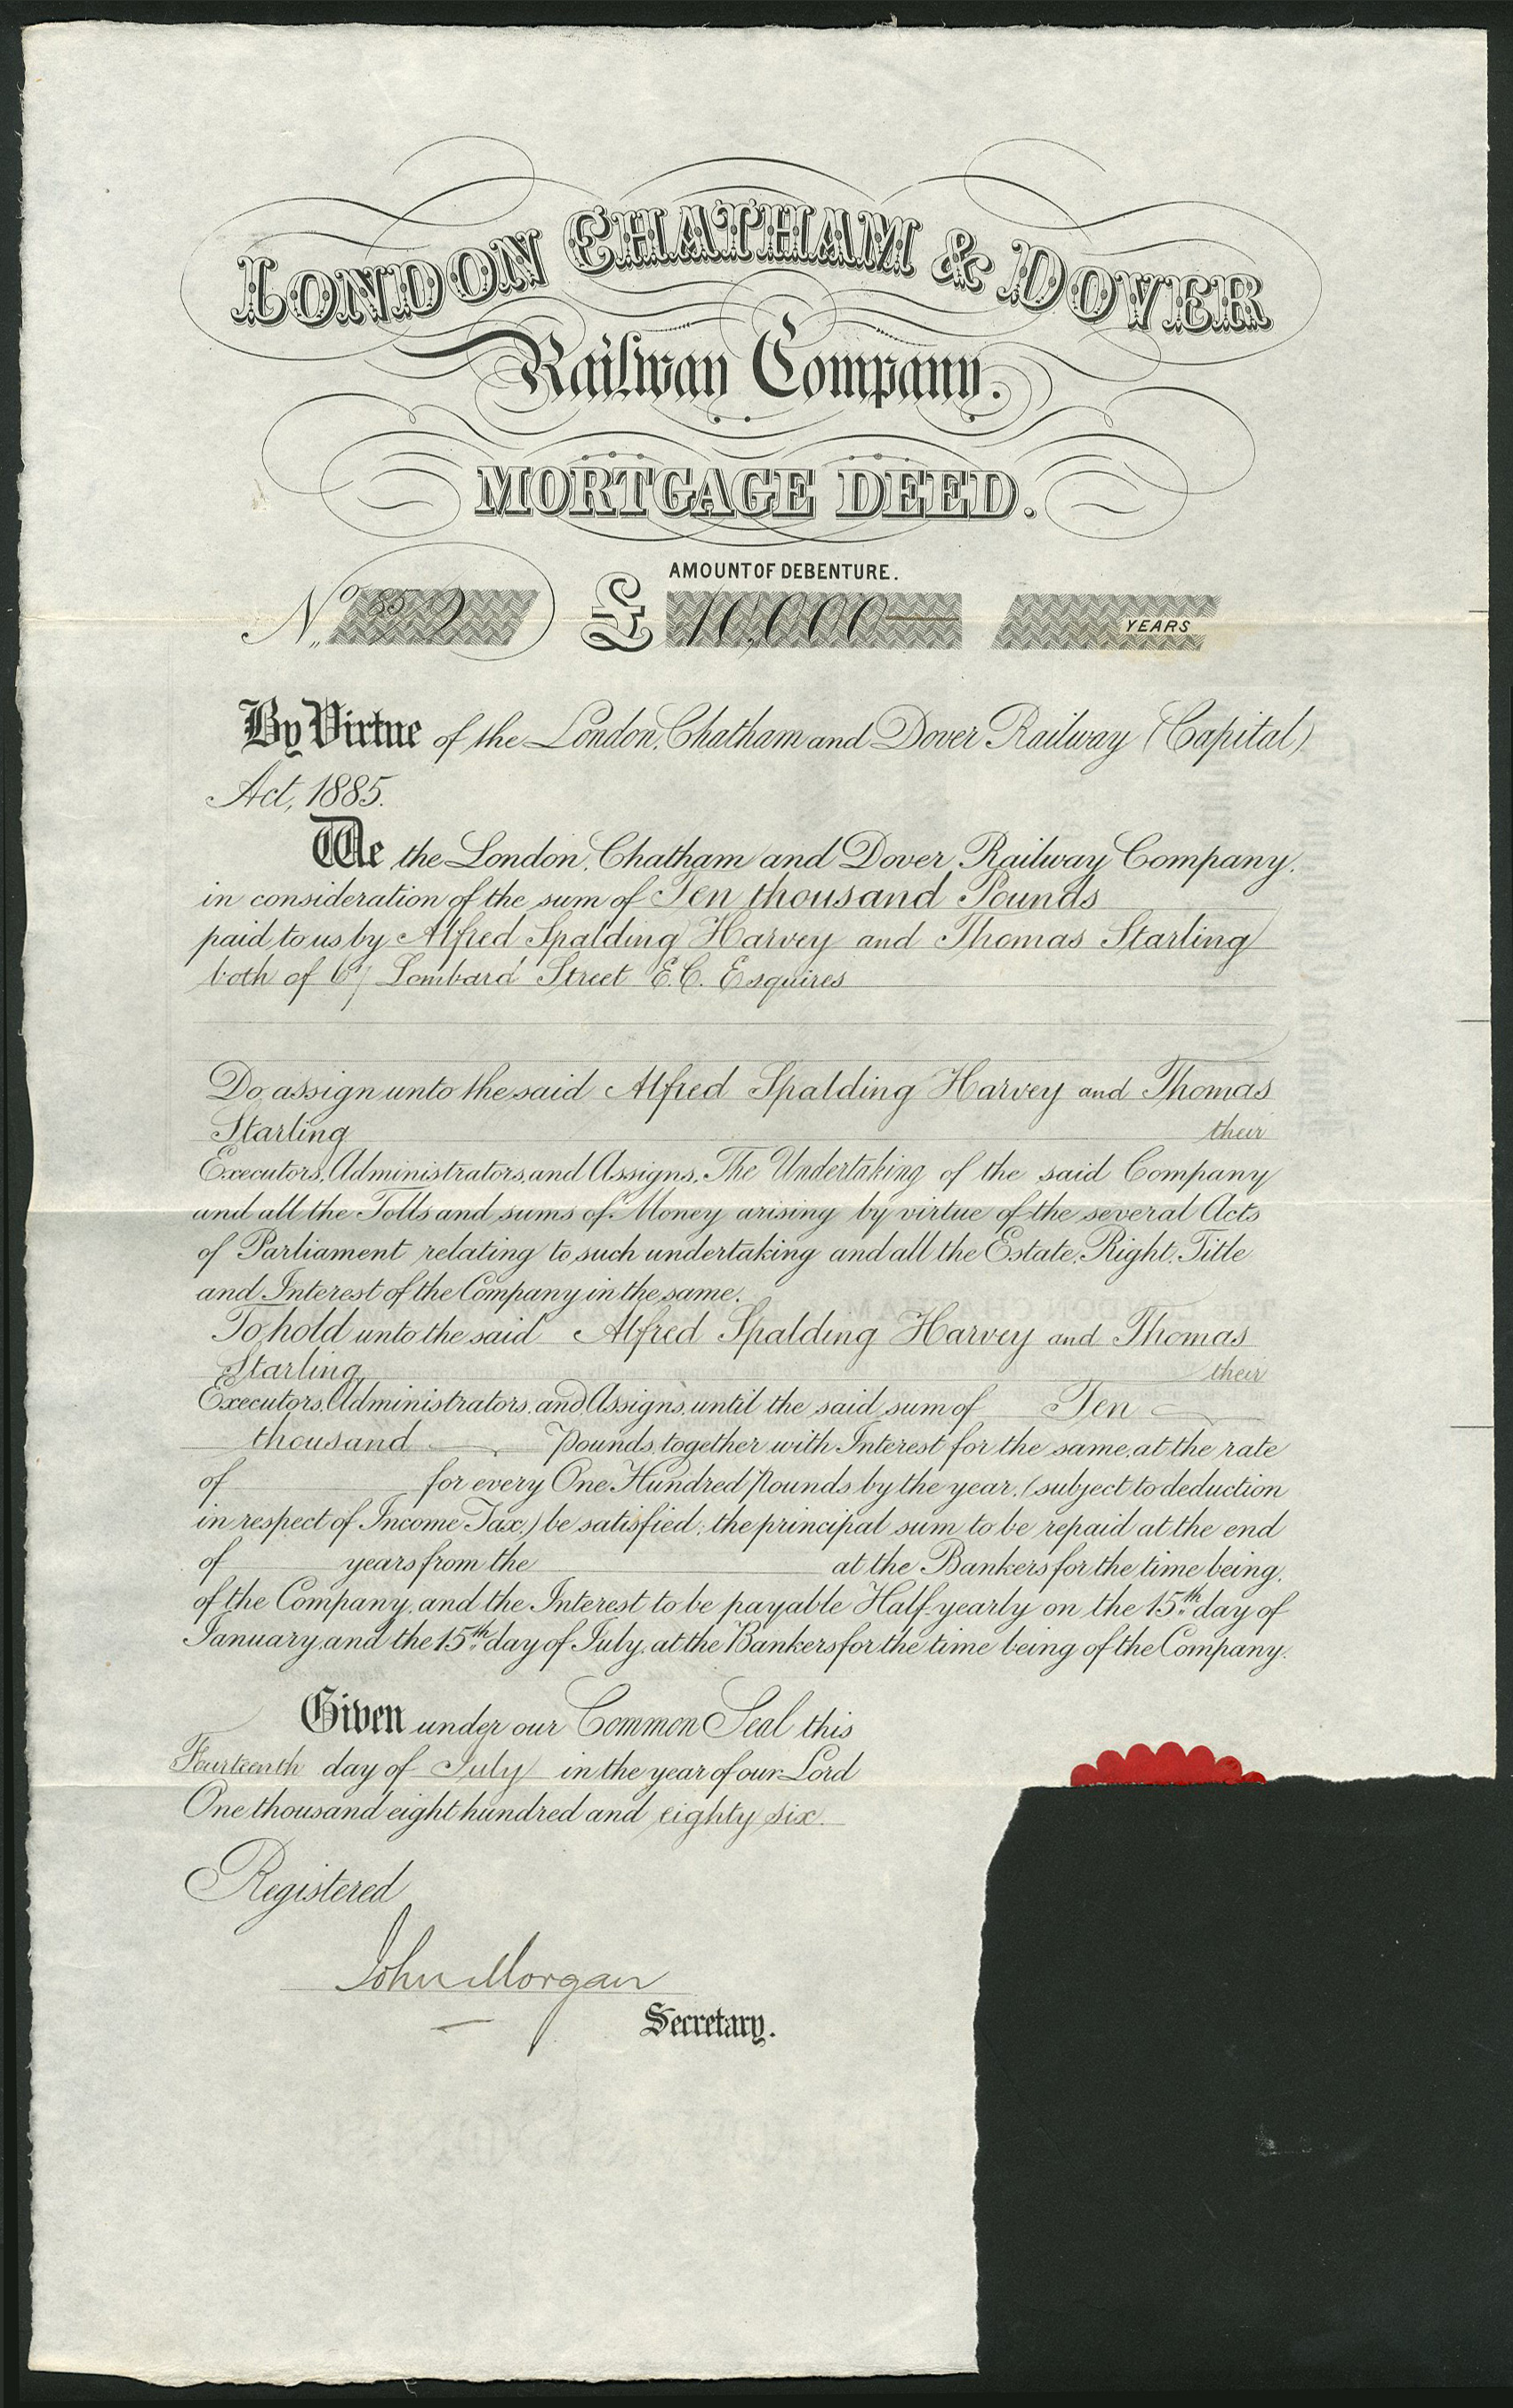 LONDON CHATHAM & DOVER
Railway Company.
MORTGAGE DEED.
AMOUNT OF DEBENTURE.
No. £ 10,000 YEARS
By Virtue of the London, Chatham and Dover Railway (Capital)
Act, 1885.
We the London, Chatham and Dover Railway Company,
in consideration of the sum of Ten thousand Pounds
paid to us by Alfred Spalding Harvey and Thomas Starling
both of 67 Lombard Street E.C. Esquires
Do assign unto the said Alfred Spalding Harvey and Thomas
Starling their
Executors, Administrators, and Assigns, The Undertaking of the said Company
and all the Tolls and sums of Money arising by virtue of the several Acts
of Parliament relating to such undertaking and all the Estate, Right, Title
and Interest of the Company in the same.
To hold unto the said Alfred Spalding Harvey and Thomas
Starling their
Executors, Administrators, and Assigns, until the said sum of Ten
thousand Pounds, together with Interest for the same, at the rate
of for every One Hundred Pounds by the year, (subject to deduction
in respect of Income Tax,) be satisfied; the principal sum to be repaid at the end
of years from the at the Bankers for the time being,
of the Company, and the Interest to be payable Half-yearly on the 15th day of
January, and the 15th day of July, at the Bankers for the time being of the Company.
Given under our Common Seal this
Fourteenth day of July in the year of our Lord
One thousand eight hundred and eighty six.
Registered
John Morgan
Secretary.